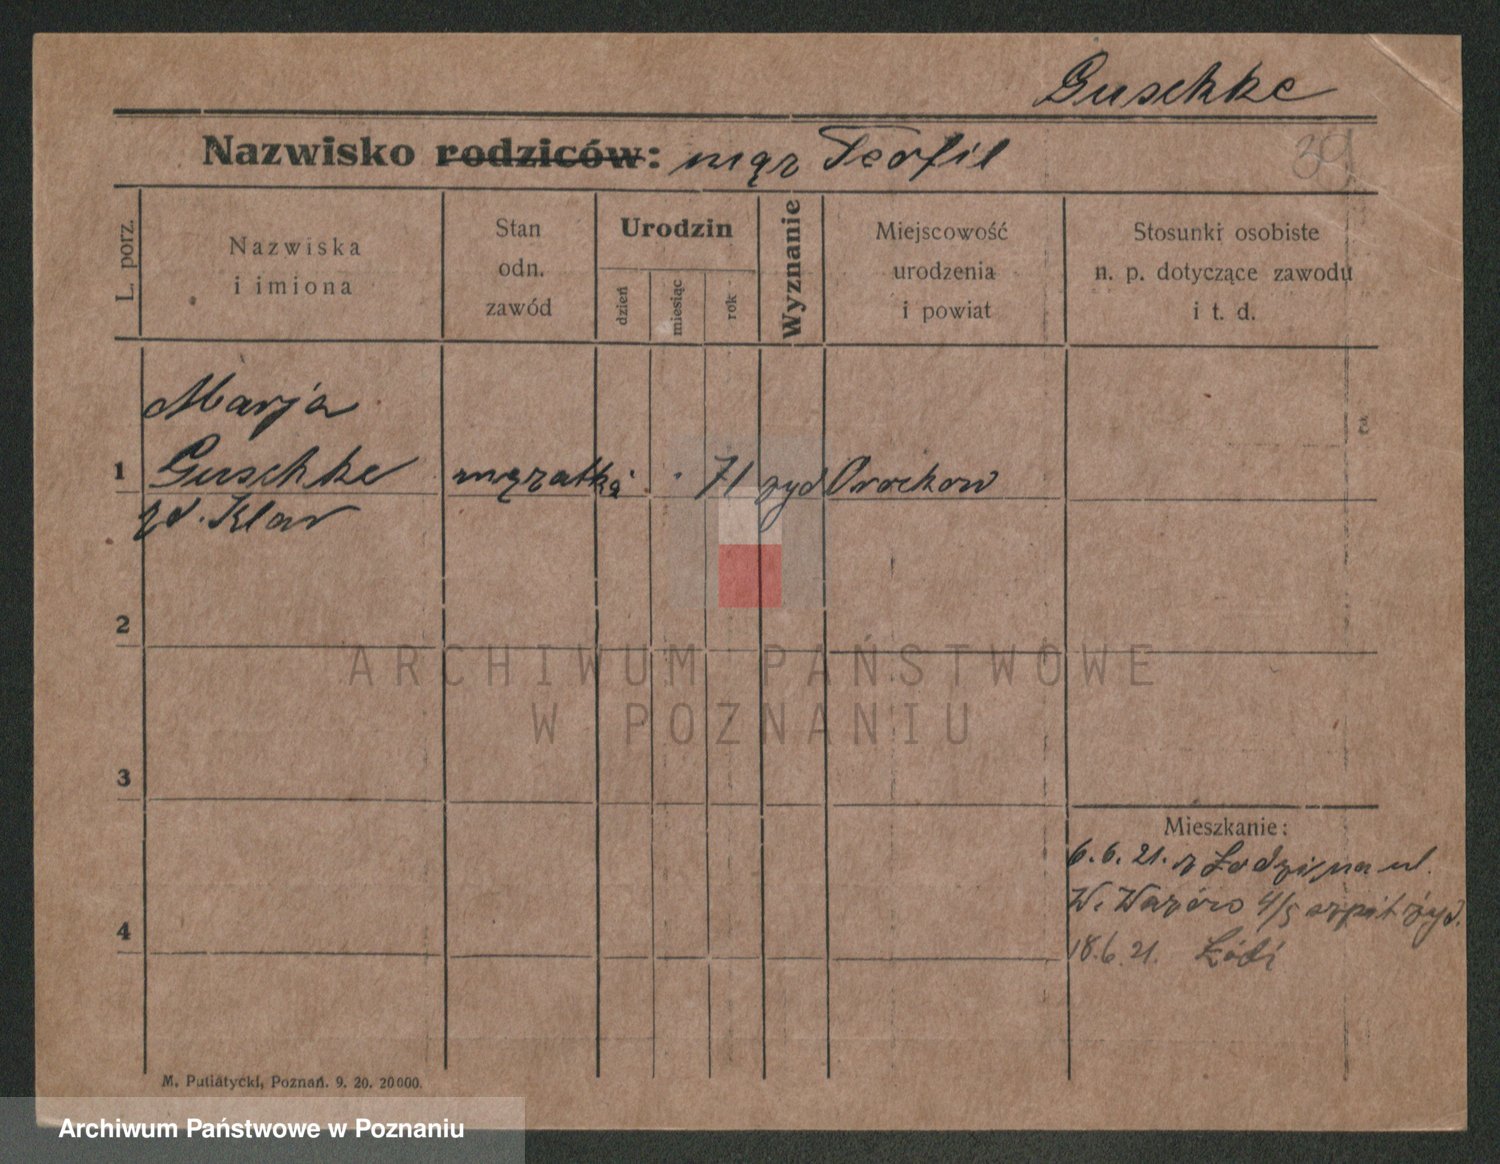 Guschke
Nazwisko rodziców: mąż Teofil
39
L. porz.
Nazwiska
i imiona
Stan
odn.
zawód
Urodzin
dzień
miesiąc
rok
Wyznanie
Miejscowość
urodzenia
i powiat
Stosunki osobiste
n. p. dotyczące zawodu
i t. d.
Marja
1 Guschke mężatka 71 żyd
Klar
2
3
4
Mieszkanie:
6.6.21. z Łodzi, na ul.
W. 4/5 szpit żyd.
18.6.21. Łódź
M. Putiatycki, Poznań. 9. 20. 20000.
ARCHIWUM PAŃSTWOWE
W POZNANIU
Archiwum Państwowe w Poznaniu